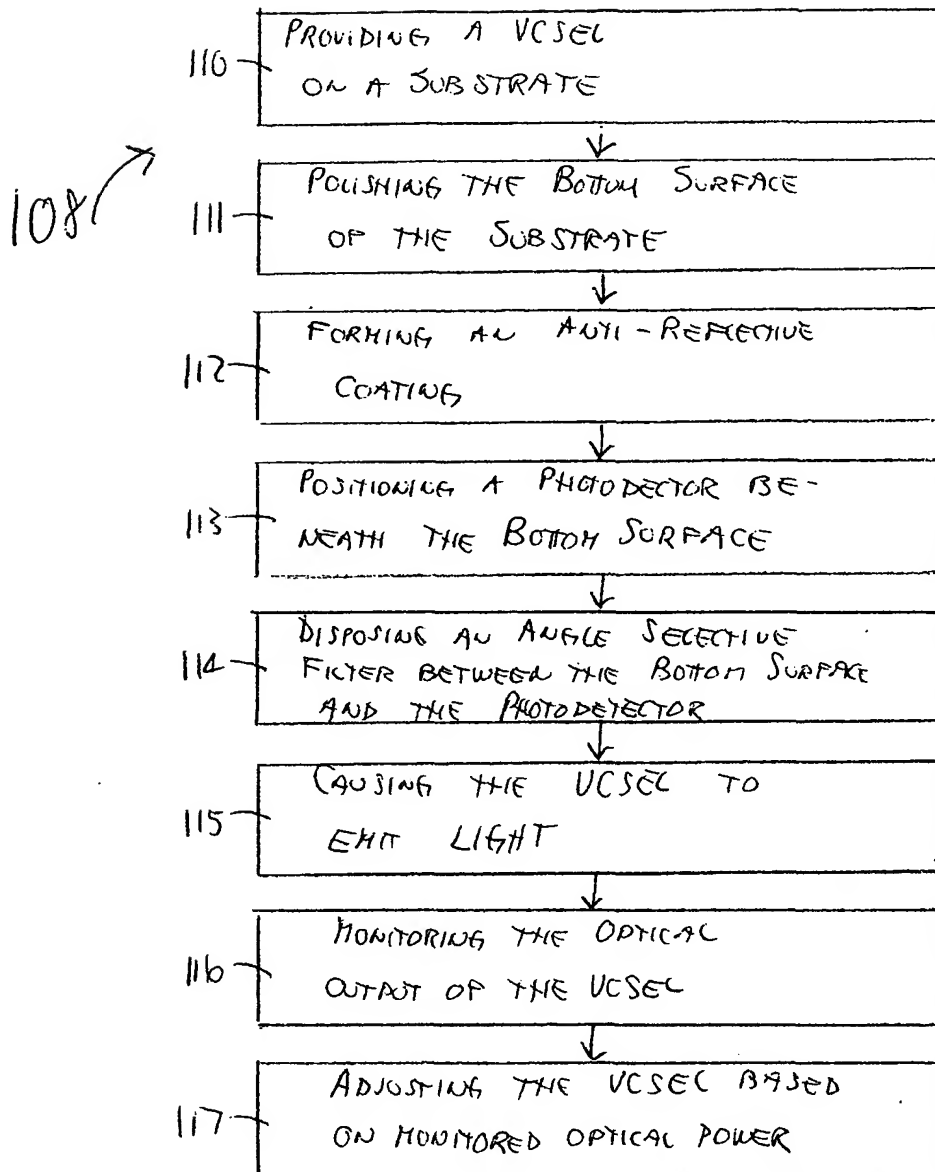 108
110
PROVIDING A VCSEL
ON A SUBSTRATE
111
POLISHING THE BOTTOM SURFACE
OF THE SUBSTRATE
112
FORMING AN ANTI-REFLECTIVE
COATING
113
POSITIONING A PHOTODECTOR BE-
NEATH THE BOTTOM SURFACE
114
DISPOSING AN ANGLE SELECTIVE
FILTER BETWEEN THE BOTTOM SURFACE
AND THE PHOTODETECTOR
115
CAUSING THE VCSEL TO
EMIT LIGHT
116
MONITORING THE OPTICAL
OUTPUT OF THE VCSEL
117
ADJUSTING THE VCSEL BASED
ON MONITORED OPTICAL POWER